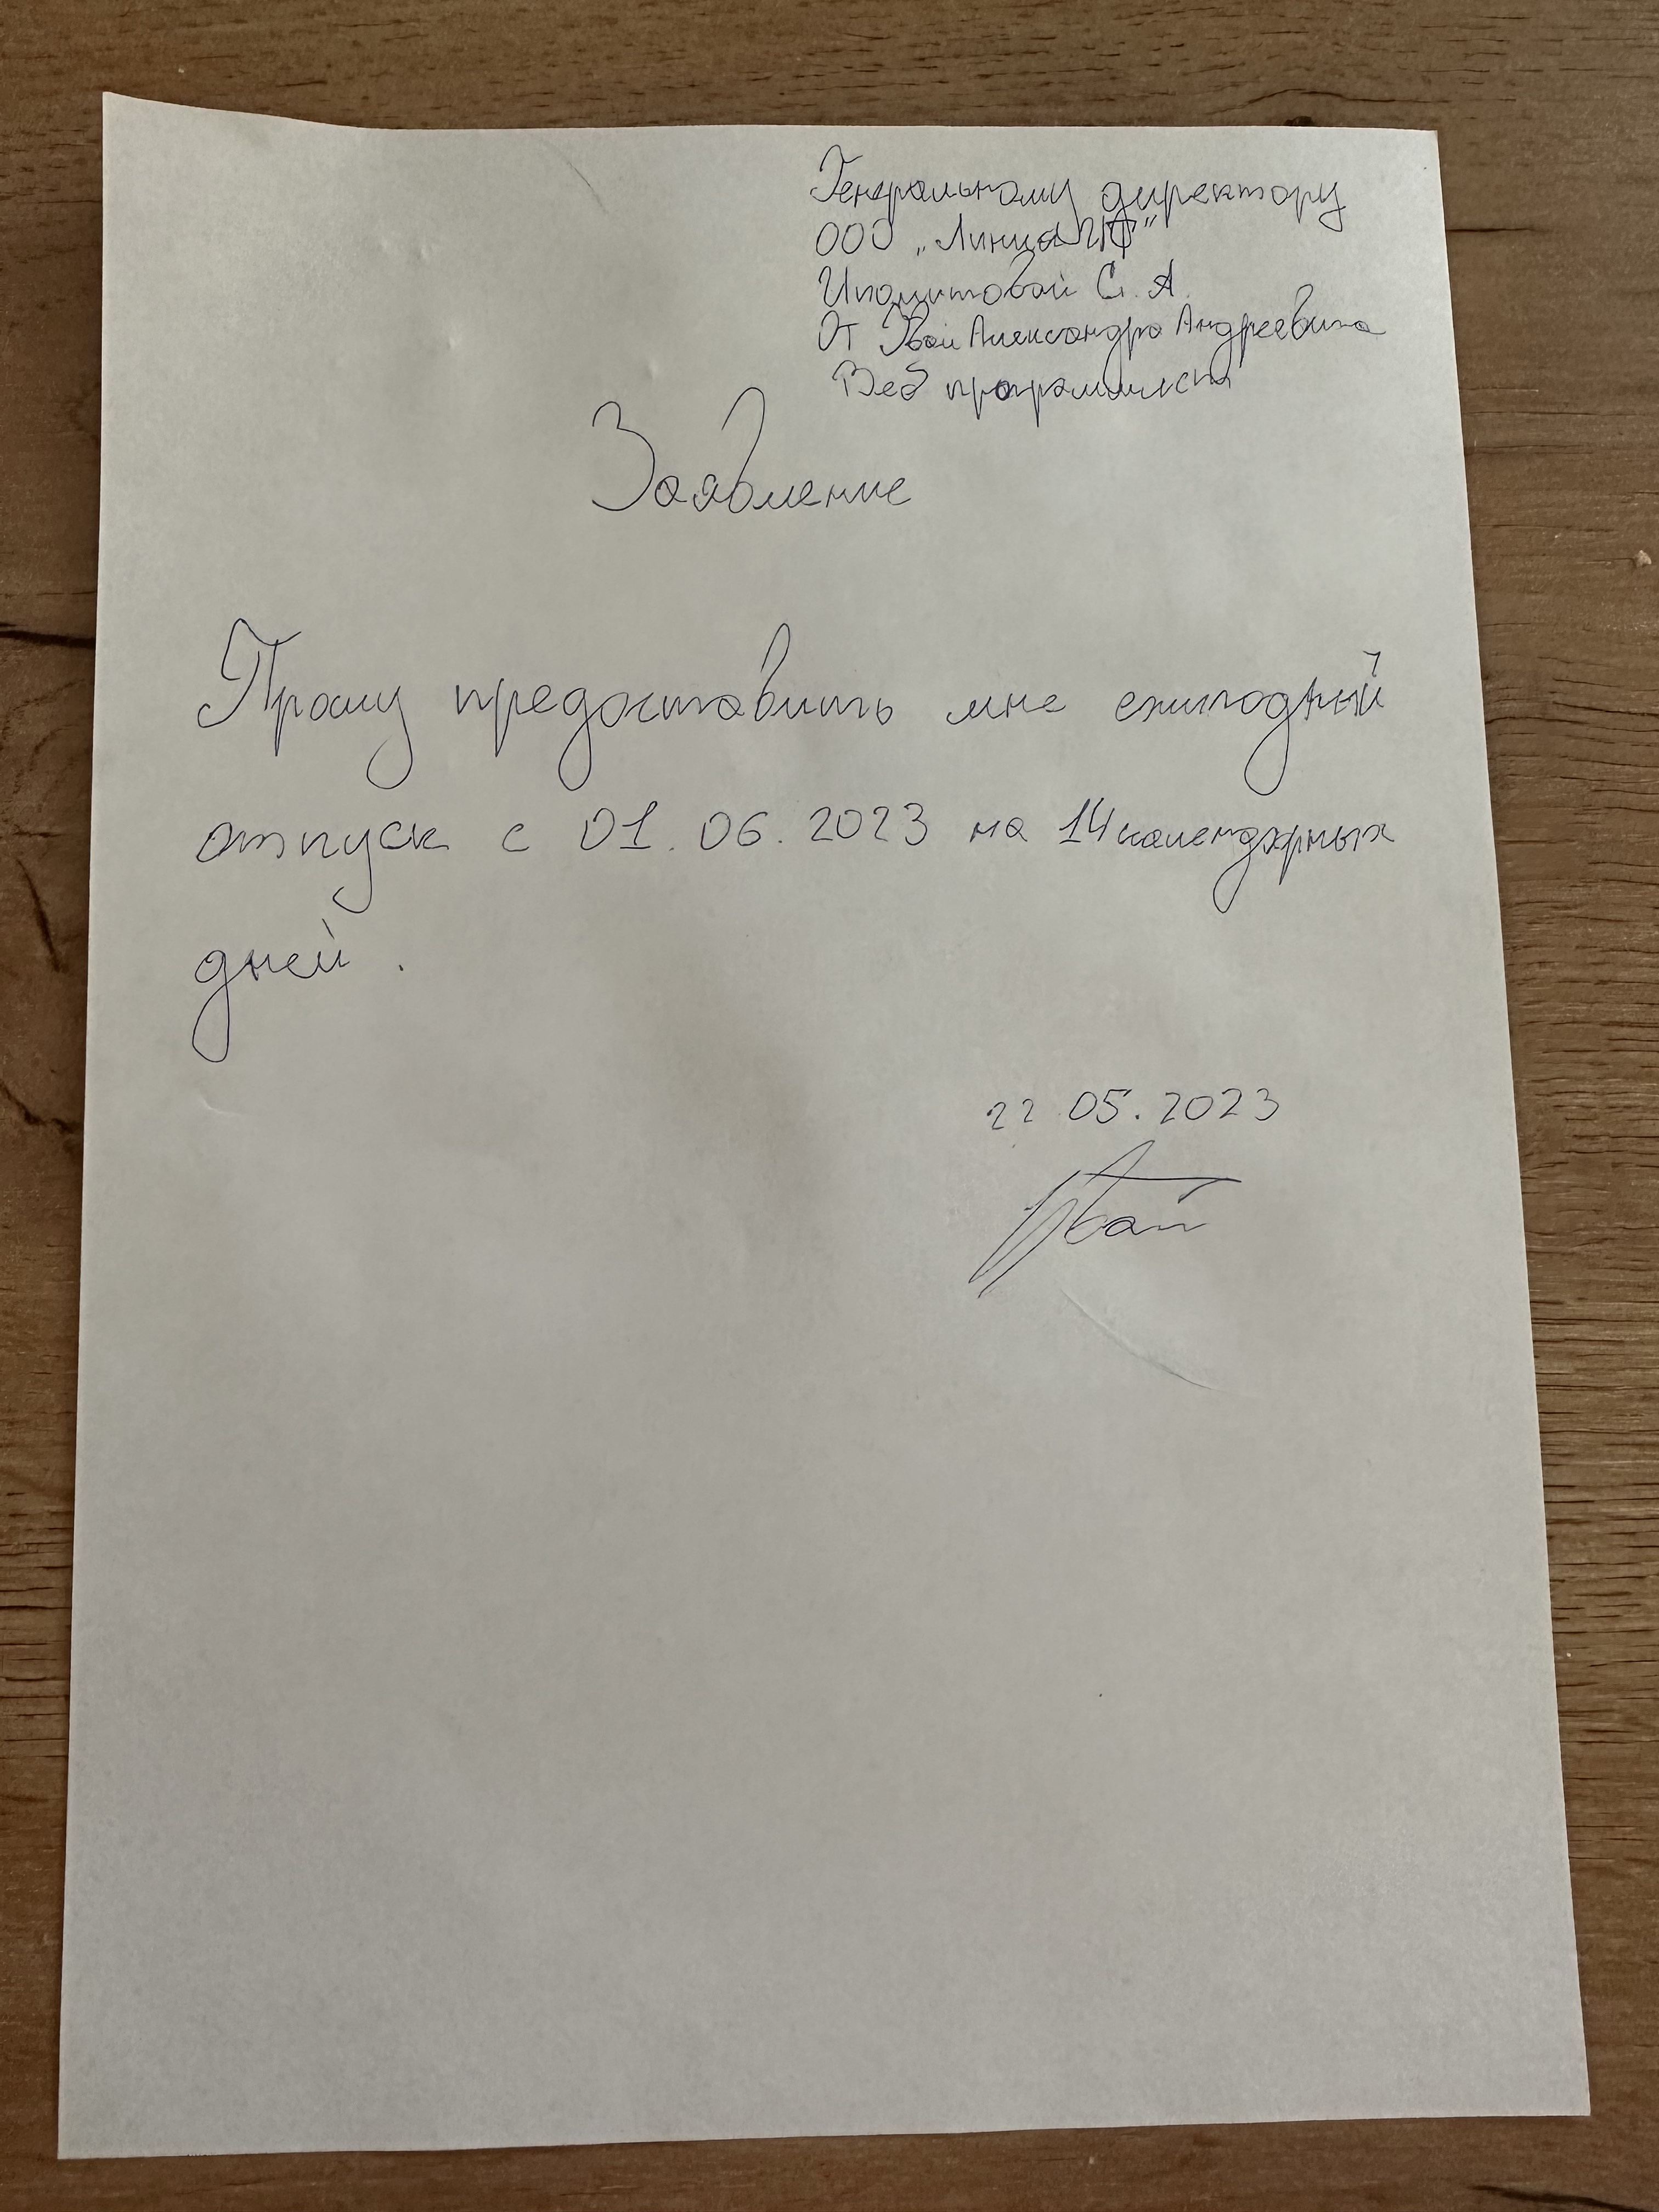 Генеральному директору
ООО "Линия
Ипомитовой С. А.
От Александра Андреевича
Веб программист
Заявление
Прошу предоставить мне ежигодный
отпуск с 01.06.2023 на 14 календарных
дней.
22 05.2023